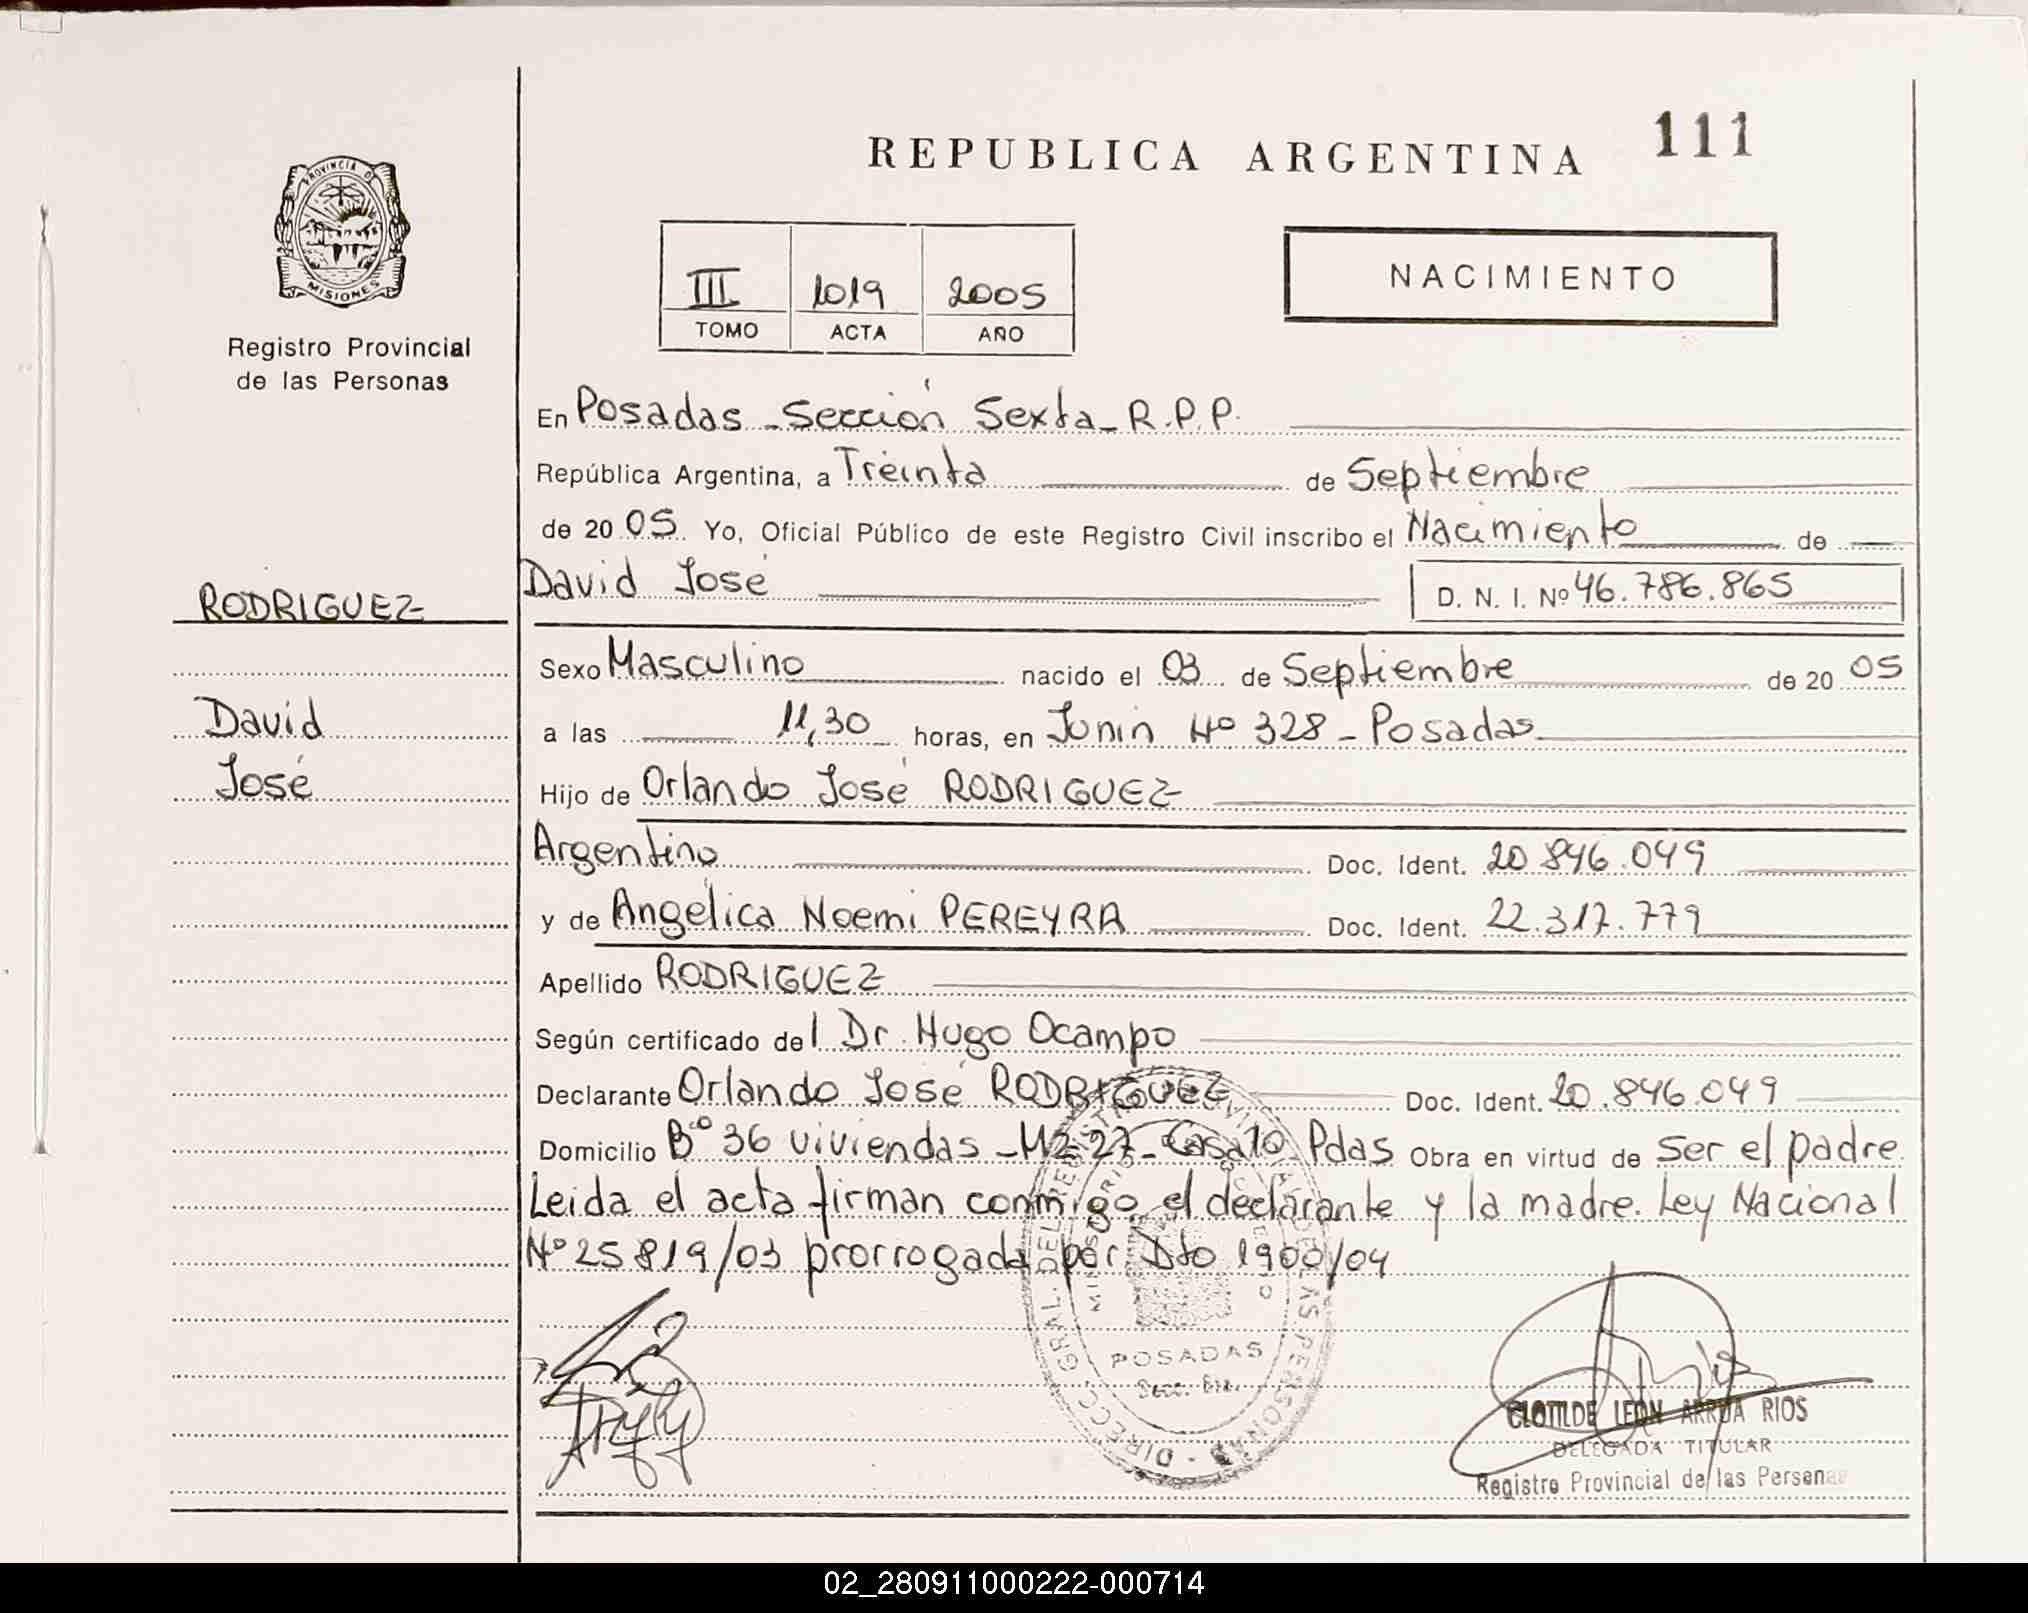 REPUBLICA ARGENTINA 111
PROVINCIA DE
MISIONES
Registro Provincial
de las Personas
III 1019 2005
TOMO ACTA AÑO
NACIMIENTO
En Posadas - Sección Sexta - R.P.P.
República Argentina, a Treinta de Septiembre
de 20 05 Yo, Oficial Público de este Registro Civil inscribo el Nacimiento de
David José D. N. I. Nº 46.786.865
RODRIGUEZ
David
José
Sexo Masculino nacido el 03 de Septiembre de 20 05
a las 11,30 horas, en Junin Nº 328 - Posadas
Hijo de Orlando José RODRIGUEZ
Argentino Doc. Ident. 20.846.049
y de Angélica Noemi PEREYRA Doc. Ident. 22.317.779
Apellido RODRIGUEZ
Según certificado del Dr. Hugo Ocampo
Declarante Orlando José RODRIGUEZ Doc. Ident. 20.846.049
Domicilio Bº 36 viviendas - Mz 27 - Casa 10 Pdas Obra en virtud de ser el padre
Leida el acta firman conmigo el declarante y la madre. Ley Nacional
Nº 25819/03 prorrogada por Dto 1900/04
POSADAS
CLOTILDE LEON ARRUA RIOS
DELEGADA TITULAR
Registro Provincial de las Personas
02_280911000222-000714